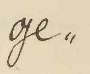 ge„